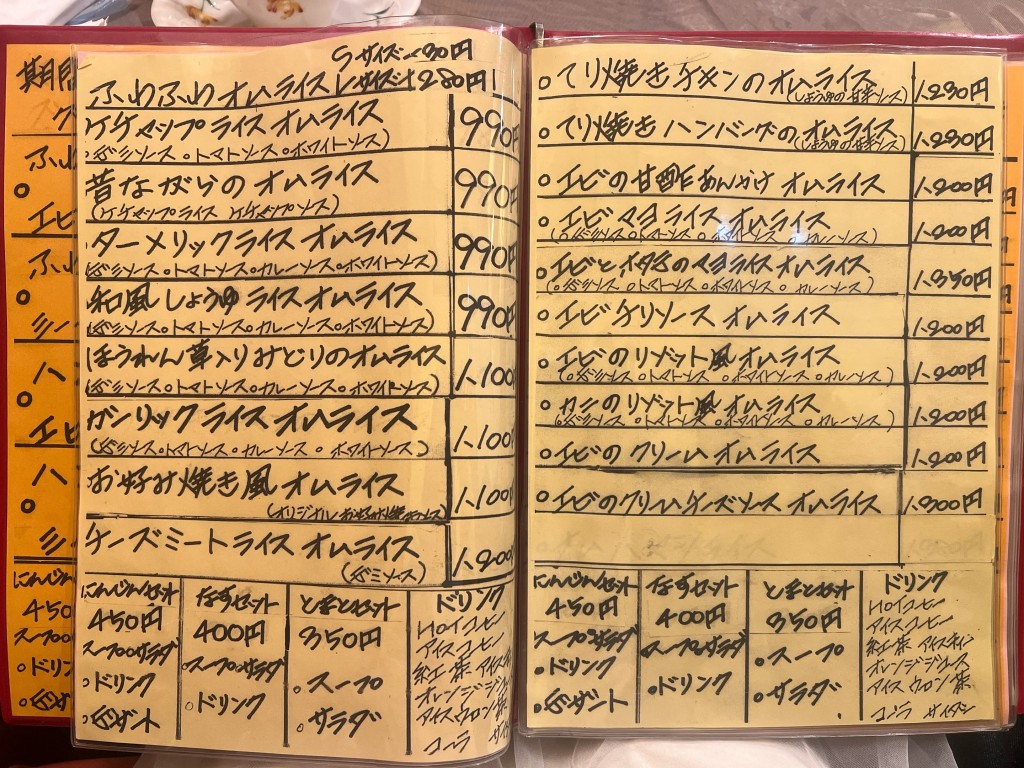 Sサイズ
ふわふわオムライス Lサイズ+280円
ケチャップライスオムライス 990円
トマトソース。ホワイトソース)
昔ながらのオムライス 990円
(ケチャップライス ケチャップソース)
ターメリックライスオムライス 990円
ソース。トマトソース。カレーソース。ホワイトソース)
和風しょうゆライスオムライス 990円
ソース。トマトソース。カレーソース。ホワイトソース)
ほうれん草入りみどりのオムライス 1.100
ソース。トマトソース。カレーソース。ホワイトソース)
ガーリックライスオムライス 1.100
ソース。トマトソース。カレーソース。ホワイトソース)
お好み焼き風オムライス 1.100
(オリジナルお好み焼きソース)
チーズミートライスオムライス 1.200
にんじんセット
450円
スープorサラダ
。ドリンク
。デザート
なすセット
400円
。スープorサラダ
。ドリンク
とまとセット
350円
。スープ
。サラダ
ドリンク
ホットコーヒー
アイスコーヒー
紅茶 アイスティ
オレンジジュース
アイスウーロン茶
コーラ
。てり焼きチキンのオムライス 1.290円
(しょうゆの甘辛ソース)
。てり焼きハンバーグのオムライス 1.290円
(しょうゆの甘辛ソース)
。エビの甘酢あんかけオムライス 1.200円
。エビマヨライスオムライス 1.200円
トマトソース 。ホワイトソース 。カレーソース)
マヨライスオムライス 1.350円
トマトソース 。ホワイトソース 。カレーソース)
。エビチリソースオムライス 1.200円
。エビのリゾット風オムライス 1.200円
トマトソース 。ホワイトソース 。カレーソース)
。カニのリゾット風オムライス 1.200円
トマトソース 。ホワイトソース 。カレーソース)
。エビのクリームオムライス 1.200円
。エビのクリームチーズソースオムライス 1.300円
にんじんセット
450円
スープorサラダ
。ドリンク
。デザート
なすセット
400円
。スープorサラダ
。ドリンク
とまとセット
350円
。スープ
。サラダ
ドリンク
ホットコーヒー
アイスコーヒー
紅茶 アイスティ
オレンジジュース
アイスウーロン茶
コーラ サイダー